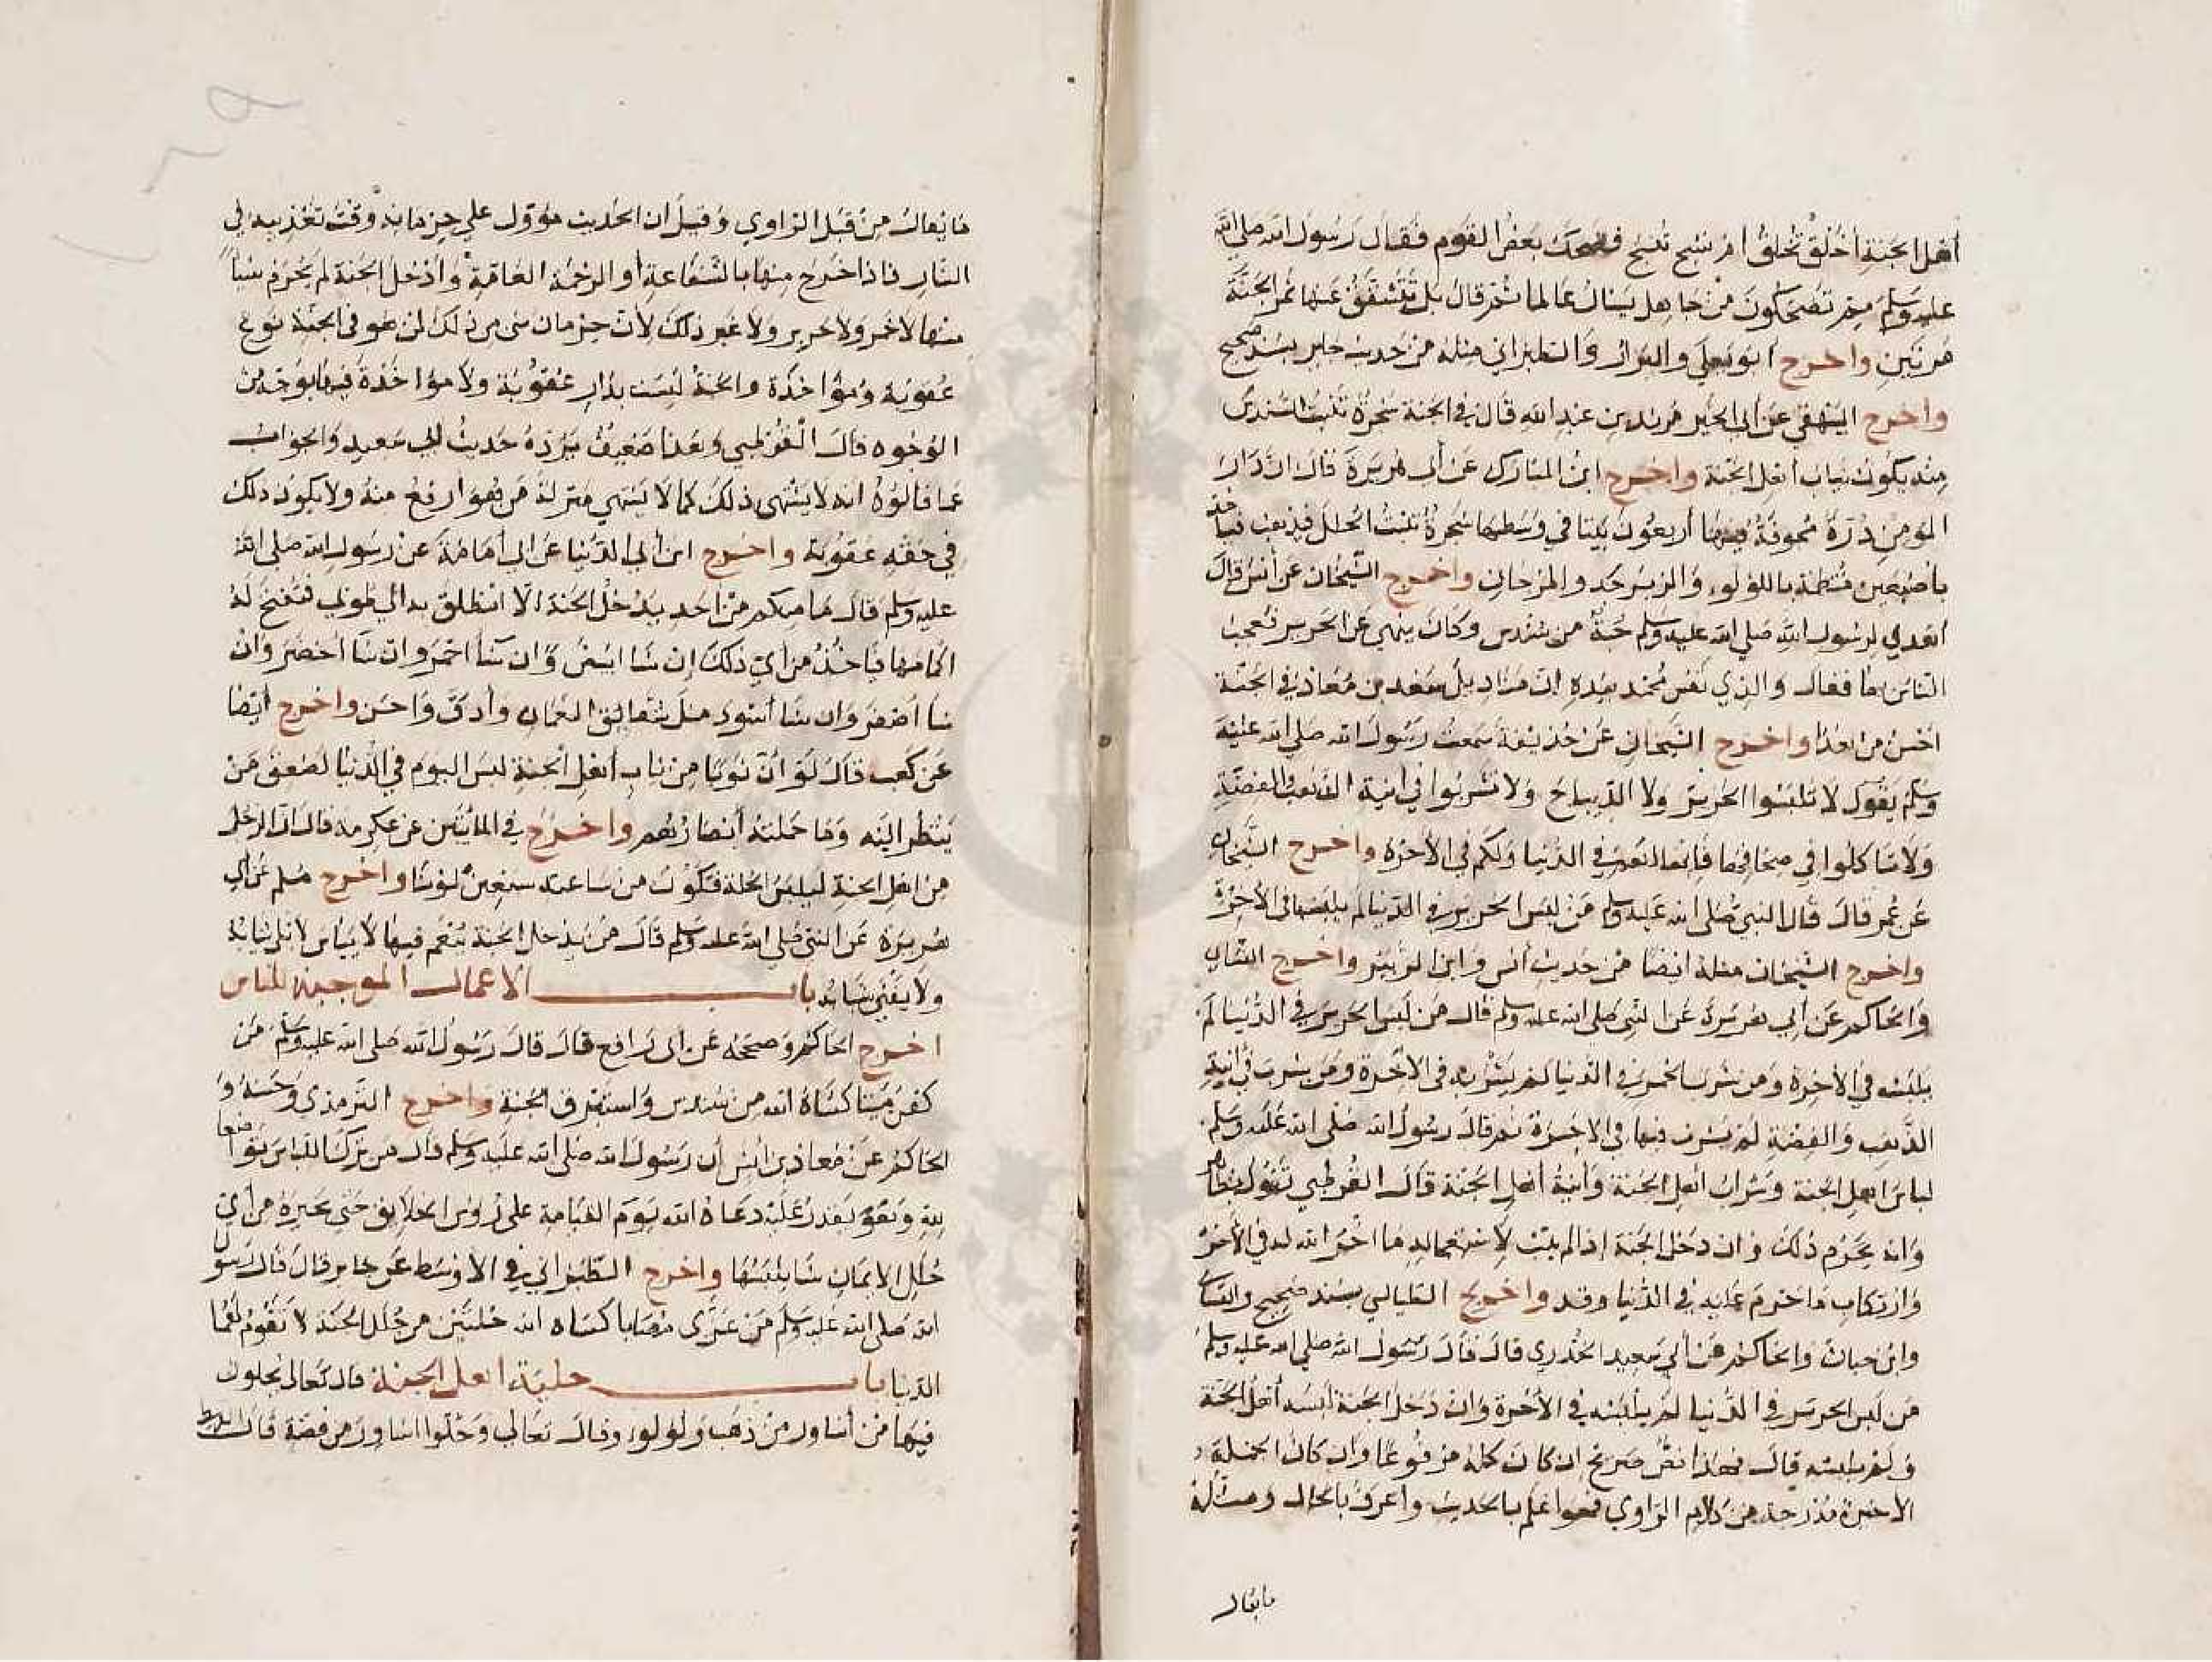 أهل الجنة أخلق تخلق أم نسج تنسج فضحك بعض القوم فقال رسول الله صلى الله
عليه وسلم مم تضحكون من جاهل يسال عالما ثم قال بل تتشقق عنها ثمر الجنة
مرتين واخرج ابو يعلي والبزار والطبراني مثله من حديث جابر بسند صحيح
واخرج البيهقي عن أبي الخير مرثد بن عبد الله قال في الجنة شجرة تنبت السندس
منه يكون ثياب أهل الجنة واخرج ابن المبارك عن أبي هريرة قال ان دار
المؤمن درة مجوفة فيها أربعون بيتا في وسطها شجرة تنبت الحلل فيذهب فياخذ
بأصبعين منطمة باللولو والزبرجد والمرجان واخرج الشيخان عن أنس قال
اهدي لرسول الله صلى الله عليه وسلم جبة من سندس وكان ينهى عن الحرير فعجب
الناس منها فقال والذي نفس محمد بيده ان مناديل سعد بن معاذ في الجنة
احسن من هذا واخرج الشيخان عن حذيفة سمعت رسول الله صلى الله عليه
وسلم يقول لا تلبسوا الحرير ولا الديباج ولا تشربوا في انية الذهب والفضة
ولا تاكلوا في صحافها فانها لهم في الدنيا ولكم في الآخرة واخرج الشيخان
عن عمر قال قال النبي صلى الله عليه وسلم من لبس الحرير في الدنيا لم يلبسها في الآخرة
واخرج الشيخان مثله ايضا من حديث أنس وابن الزبير واخرج النسائي
والحاكم عن أبي هريرة عن النبي صلى الله عليه وسلم قال من لبس الحرير في الدنيا لم
يلبسه في الآخرة ومن شرب الخمر في الدنيا لم يشربه في الآخرة ومن شرب في آنية
الذهب والفضة لم يشرب فيها في الاخرة ثم قال رسول الله صلى الله عليه وسلم
لباس اهل الجنة وشراب اهل الجنة وآنية أهل الجنة قال القرطبي نقول بظاهره
وانه يحرم ذلك وان دخل الجنة اذا لم يتب لاستعجاله ما اخر الله له في الآخرة
وارتكاب ما حرم عليه في الدنيا وقد واخرج الطيالسي بسند صحيح والنسائي
وابن حبان والحاكم عن أبي سعيد الخدري قال قال رسول الله صلى الله عليه وسلم
من لبس الحرير في الدنيا لم يلبسه في الآخرة وان دخل الجنة لبسه أهل الجنة
ولم يلبسه قال فهذا نص صريح ان كان كله مرفوعا وان كان الجملة
الاخيرة مدرجة من كلام الراوي فهو اعلم بالحديث واعرف بالحال ومثله
ما يقال
ما يقال من قبل الراوي وقيل ان الحديث مؤول علي حرمانه وقت تعذيبه في
النار فاذا خرج منها بالشفاعة أو الرحمة العامة وادخل الجنة لم يحرم شيأ
منها لا خمر ولا حرير ولا غير ذلك لأن حرمان شي من ذلك لمن هو في الجنة نوع
عقوبة ومؤاخذة والجنة ليست بدار عقوبة ولا مؤاخذة فيها بوجه من
الوجوه قال القرطبي وهذا ضعيف يرده حديث ابي سعيد والجواب
عما قالوه انه لا يشتهى ذلك كما لا يشتهي منزلة من هو ارفع منه ولا يكون ذلك
في حقه عقوبة واخرج ابن أبي الدنيا عن ابي أمامة عن رسول الله صلى الله
عليه وسلم قال ما منكم من احد يدخل الجنة الا انطلق به الي طوبي فتفتح له
اكمامها فياخذ من أي ذلك إن شا ابيض وان شأ احمر وان شا اخضر وان
شا اصفر وان شا أسود مثل شقايق النعمان وأدق واحسن واخرج أيضا
عن كعب قال لو ان ثوبا من ثياب أهل الجنة لبس اليوم في الدنيا لصعق من
ينظر اليه وما حملته أبصارهم واخرج في المائتين عن عكرمة قال ان الرجل
من اهل الجنة ليلبس الحلة فتكون من ساعته سبعين لونا واخرج مسلم عن ابي
هريرة عن النبي صلى الله عليه وسلم قال من يدخل الجنة ينعم فيها لا يباس لا تبلى ثيابه
ولا يفني شبابه باب الاعمال الموجبة للباس
اخرج الحاكم وصححه عن أبي رافع قال قال رسول الله صلى الله عليه وسلم من
كفن ميتا كساه الله من سندس واستبرق الجنة واخرج الترمذي وحسنه و
الحاكم عن معاذ بن أنس أن رسول الله صلى الله عليه وسلم قال من ترك اللباس تواضعا
لله وهو يقدر عليه دعاه الله يوم القيامة على رؤس الخلايق حتى يخيره من أي
حلل الايمان شا يلبسها واخرج الطبراني في الاوسط عن جابر قال قال رسول
الله صلى الله عليه وسلم من عزى مصابا كساه الله حلتين من حلل الجنة لا تقوم لهما
الدنيا باب حلية اهل الجنة قال تعالى يحلون
فيها من أساور من ذهب ولولو وقال تعالى وحلوا اساور من فضة قال